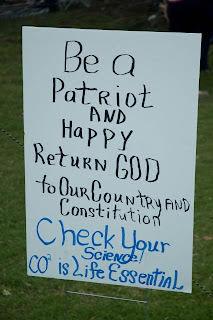 Be a
Patriot
AND
Happy
Return GOD
to Our Country AND
Constitution
Check Your
Science!
CO² is Life Essential